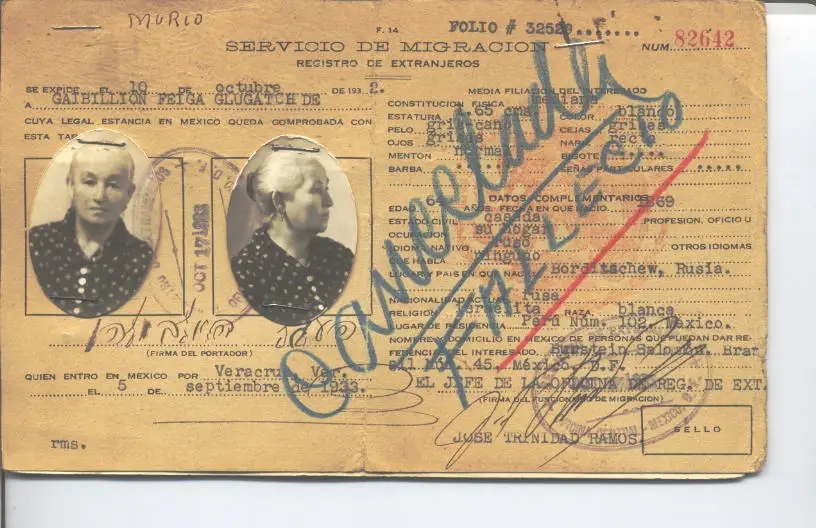 MURIO
F. 14
FOLIO # 32520.......
SERVICIO DE MIGRACION
NUM. 82642
REGISTRO DE EXTRANJEROS
SE EXPIDE EL 10 DE octubre DE 193 .
A GAIBILLION FEIGA GLUGATCH DE
CUYA LEGAL ESTANCIA EN MEXICO QUEDA COMPROBADA CON
ESTA TAR
OCT 17 1933
(FIRMA DEL PORTADOR)
QUIEN ENTRO EN MEXICO POR Veracruz, Ver.
EL 5 DE septiembre de 1933.
rms.
MEDIA FILIACION DEL INTERESADO
CONSTITUCION FISICA mediana
ESTATURA 65 cms. COLOR blanco
PELO cano CEJAS grises
OJOS grises NARIZ recta
MENTON normal BIGOTE .....
BARBA ..... SEÑAS PARTICULARES .....
DATOS COMPLEMENTARIOS
EDAD 64 AÑOS, FECHA EN QUE NACIO 1869
ESTADO CIVIL casada PROFESION, OFICIO U
OCUPACION su hogar
IDIOMA NATIVO ruso OTROS IDIOMAS
QUE HABLA ninguno
LUGAR Y PAIS EN QUE NACIO Borditschew, Rusia.
NACIONALIDAD ACTUAL rusa
RELIGION israelita RAZA blanca
LUGAR DE RESIDENCIA Perú Núm. 102. México.
NOMBRE Y DOMICILIO EN MEXICO DE PERSONAS QUE PUEDAN DAR RE-
FERENCIAS DEL INTERESADO. Burstein Salomón. Bra-
sil 45. México, D.F.
EL JEFE DE LA OFICINA DE REG. DE EXT.
(FIRMA DEL FUNCIONARIO DE MIGRACION)
JOSE TRINIDAD RAMOS.
SELLO
Cancelada
FALLECIO